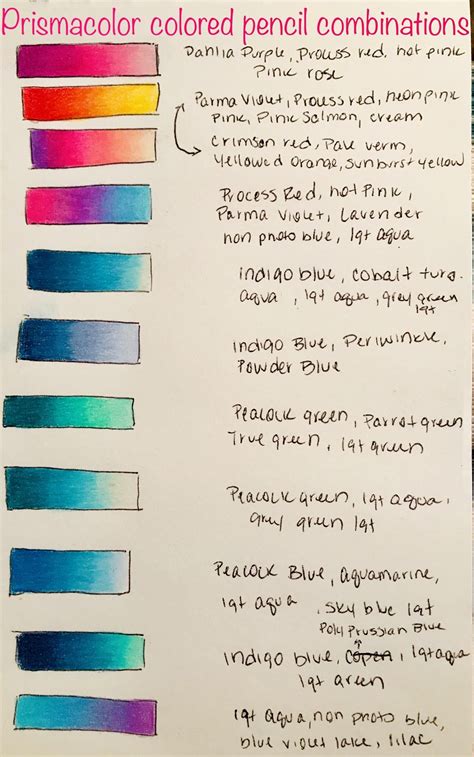 Prismacolor colored pencil combinations
Dahlia Purple, Process red, hot pink
Pink rose
Parma Violet, Process red, neon pink
Pink, Pink Salmon, cream
Crimson red, Pale verm,
Yellowed Orange, sunburst yellow
Process Red, hot Pink,
Parma Violet, Lavender
non photo blue, lgt aqua
indigo blue, cobalt turq.
aqua, lgt aqua, grey green
lgt
indigo Blue, Periwinkle,
Powder Blue
Peacock green, Parrot green
True green, lgt green
Peacock green, lgt aqua,
grey green lgt
Peacock Blue, aquamarine,
lgt aqua, sky blue lgt
Poly Prussian Blue
indigo blue, copen, lgt aqua
lgt green
lgt aqua, non photo blue,
blue violet lake, lilac